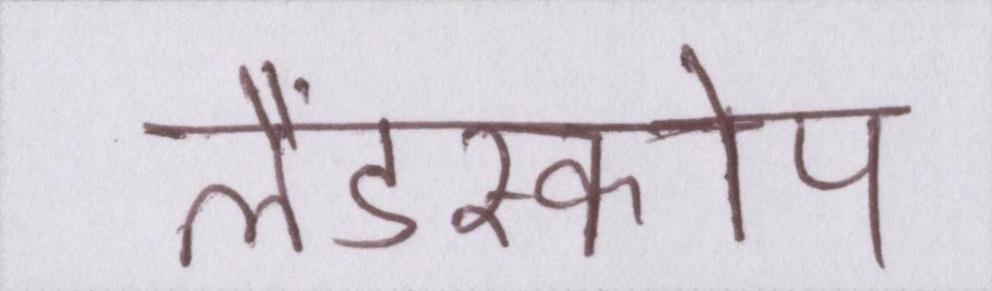 लैंडस्कोप